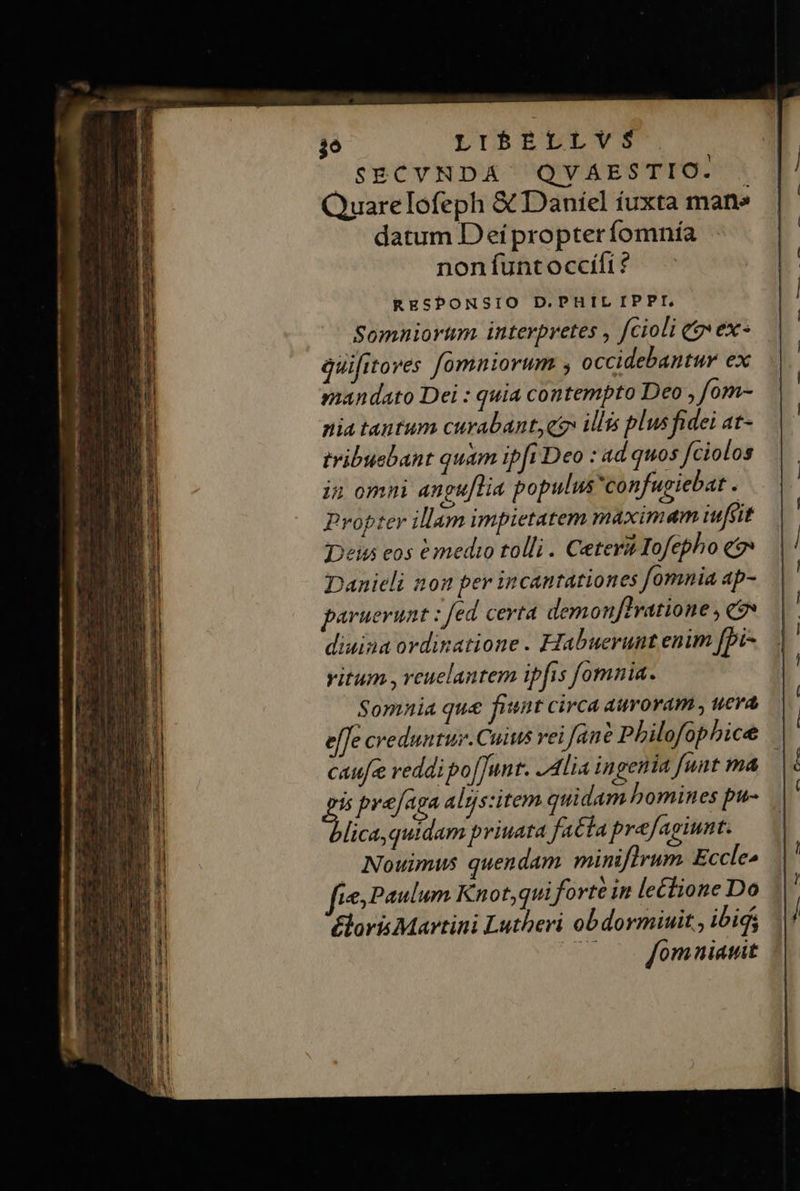 30 LIBELLVS
SECVNDA QVAESTIO.
Quare Ioſeph & Daniel iuxta man-
datum Dei propter ſomnia
non ſunt occiſi?
RESPONSIO D. PHILIPPI.
Somniorum interpretes, ſcioli & ex-
quiſitores ſomniorum, occidebantur ex
mandato Dei: quia contempto Deo, ſom-
nia tantum curabant, & illis plus fidei at-
tribuebant quàm ipſi Deo: ad quos ſciolos
in omni anguſtia populus confugiebat.
Propter illam impietatem maximam iuſsit
Deus eos è medio tolli. Ceterù Ioſepho &
Danieli non per incantationes ſomnia ap-
paruerunt: ſed certa demonſtratione, &
diuina ordinatione. Habuerunt enim ſpi-
ritum, reuelantem ipſis ſomnia.
Somnia quæ fiunt circa auroram, uera
eſſe creduntur. Cuius rei ſanè Philoſophicæ
cauſæ reddi poſſunt. Alia ingenia ſunt ma
gis præſaga alijs: item quidam homines pu-
blica, quidam priuata facta præſagiunt.
Nouimus quendam miniſtrum Eccle-
ſiæ, Paulum Knot, qui fortè in lectione Do
ctoris Martini Lutheri obdormiuit, ibiq;
ſomniauit